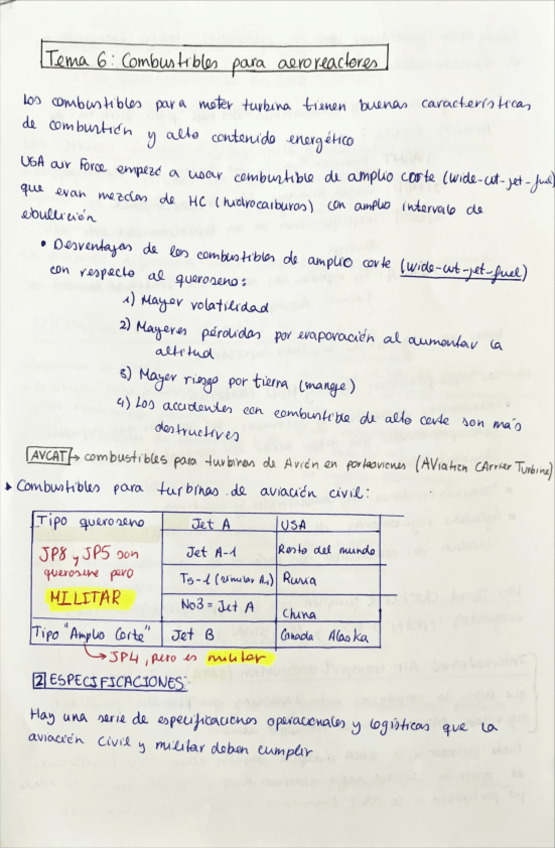 Tema 6: Combustibles para aeroreactores
Los combustibles para motor turbina tienen buenas características
de combustión y alto contenido energético
USA air Force empezó a usar combustible de amplio corte (wide-cut-jet-fuel)
que eran mezclas de HC (hidrocarburos) con amplio intervalo de
ebullición
• Desventajas de los combustibles de amplio corte (wide-cut-jet-fuel)
con respecto al queroseno:
1) Mayor volatilidad
2) Mayores pérdidas por evaporación al aumentar la
altitud
3) Mayor riesgo por tierra (manejo)
4) Los accidentes con combustible de alto corte son más
destructivos
AVCAT → combustibles para turbinas de Avión en portaaviones (AViation CArrier Turbine)
Combustibles para turbinas de aviación civil:
Tipo queroseno Jet A USA
JP8 y JP5 son Jet A-1 Resto del mundo
queroseno pero TS-1 (similar A1) Rusia
MILITAR No3 = Jet A China
Tipo "Amplio Corte" Jet B Canada Alaska
→ JP4, pero es militar
2 ESPECIFICACIONES:
Hay una serie de especificaciones operacionales y logísticas que la
aviación civil y militar deben cumplir